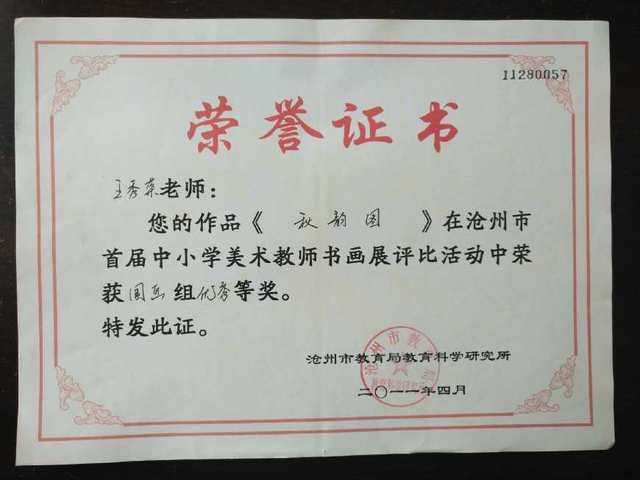 11280057
荣誉证书
王秀荣老师：
您的作品《 秋韵图 》在沧州市
首届中小学美术教师书画展评比活动中荣
获国画组优秀等奖。
特发此证。
沧州市教育局教育科学研究所
二〇一一年四月